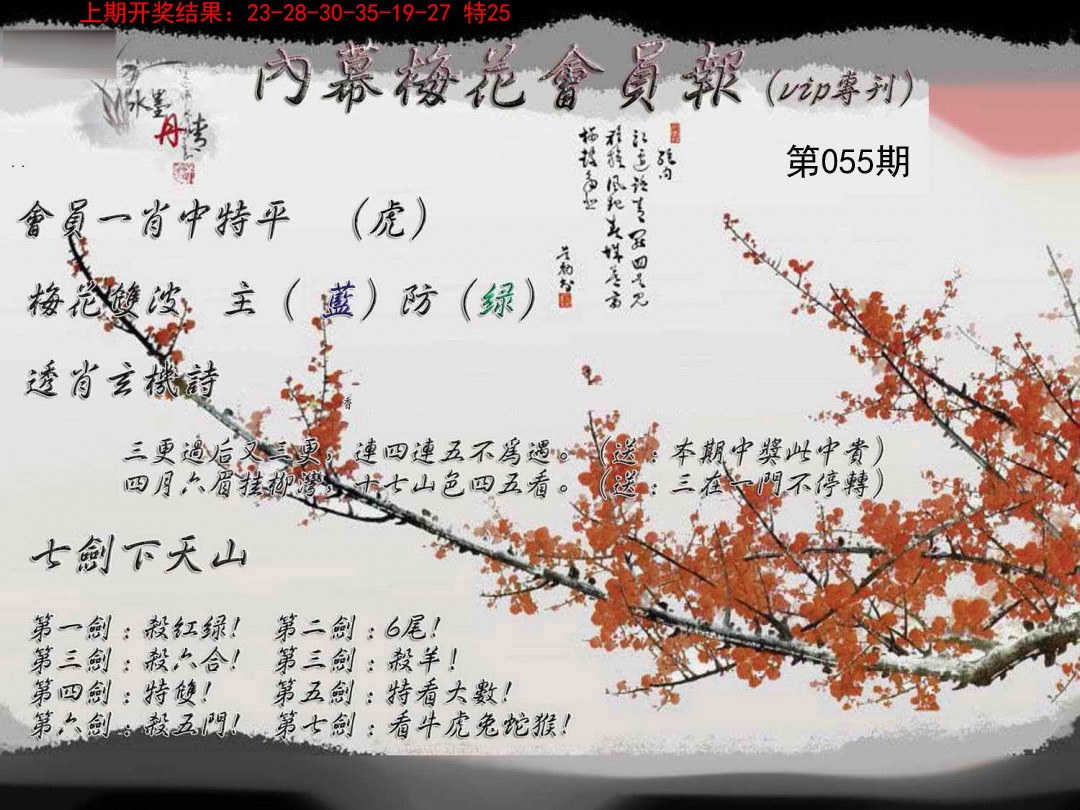 上期开奖结果：23-28-30-35-19-27 特25
內幕梅花會員報（vip專刊）
水墨
丹青
第055期
會員一肖中特平　（虎）
梅花雙波　主（藍）防（绿）
透肖玄機詩
香
三更過后又三更，連四連五不爲遇。（送：本期中獎此中貴）
四月六眉挂柳灣，十七山色四五看。（送：三在一門不停轉）
七劍下天山
第一劍：殺紅绿！　第二劍：6尾！
第三劍：殺六合！　第三劍：殺羊！
第四劍：特雙！　第五劍：特看大數！
第六劍：殺五門！　第七劍：看牛虎兔蛇猴！